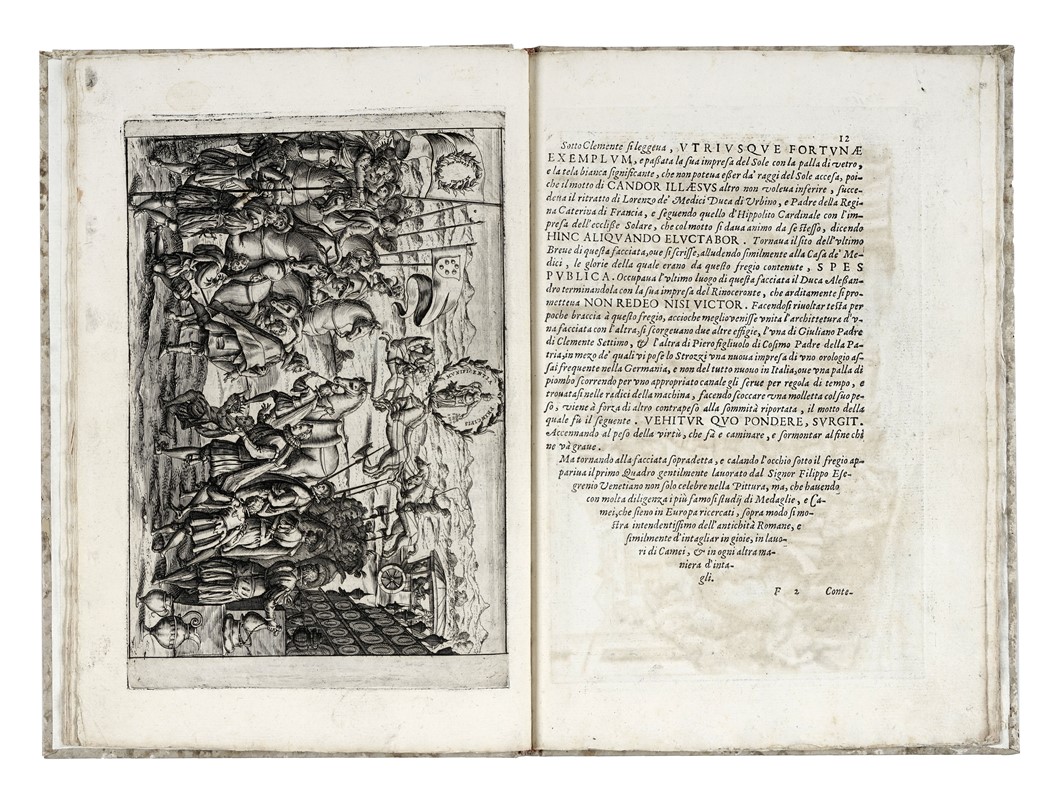 12
Sotto Clemente si leggeua, VTRIVSQVE FORTVNÆ
EXEMPLVM, e paſſata la ſua impreſa del Sole con la palla di vetro,
e la tela bianca ſignificante, che non poteua eſſer da' raggi del Sole acceſa, poi-
che il motto di CANDOR ILLÆSVS altro non voleua inferire, ſucce-
deua il ritratto di Lorenzo de' Medici Duca di Vrbino, e Padre della Regi-
na Caterina di Francia, e ſeguendo quello d'Hippolito Cardinale con l'im-
preſa dell'eccliſſe Solare, che col motto ſi daua animo da ſe ſteſſo, dicendo
HINC ALIQVANDO ELVCTABOR. Tornaua il ſito dell'vltimo
Breue di queſta facciata, oue ſi ſcriſſe, alludendo ſimilmente alla Caſa de' Me-
dici, le glorie della quale erano da queſto fregio contenute, SPES
PVBLICA. Occupaua l'vltimo luogo di queſta facciata il Duca Aleſſan-
dro terminandola con la ſua impreſa del Rinoceronte, che arditamente ſi pro-
metteua NON REDEO NISI VICTOR. Facendoſi riuoltar teſta per
poche braccia à queſto fregio, accioche meglio veniſſe vnita l'architettura d'v-
na facciata con l'altra, ſi ſcorgeuano due altre effigie, l'vna di Giuliano Padre
di Clemente Settimo, & l'altra di Piero figliuolo di Coſimo Padre della Pa-
tria, in mezo de' quali vi poſe lo Strozzi vna nuoua impreſa di vno orologio aſ-
ſai frequente nella Germania, e non del tutto nuouo in Italia, oue vna palla di
piombo ſcorrendo per vno appropriato canale gli ſerue per regola di tempo, e
trouataſi nelle radici della machina, facendo ſcoccare vna molletta col ſuo pe-
ſo, viene à forza di altro contrapeſo alla ſommità riportata, il motto della
quale fù il ſeguente. VEHITVR QVO PONDERE, SVRGIT.
Accennando al peſo della virtù, che sà e caminare, e ſormontar al fine chi
ne và graue.
Ma tornando alla facciata ſopradetta, e calando l'occhio ſotto il fregio ap-
pariua il primo Quadro gentilmente lauorato dal Signor Filippo Eſe-
grenio Venetiano non ſolo celebre nella Pittura, ma, che hauendo
con molta diligenza i più famoſi ſtudij di Medaglie, e Ca-
mei, che ſieno in Europa ricercati, ſopra modo ſi mo-
ſtra intendentiſſimo dell'antichità Romane, e
ſimilmente d'intagliar in gioie, in lauo-
ri di Camei, & in ogni altra ma-
niera d'inta-
gli.
F 2 Conte-